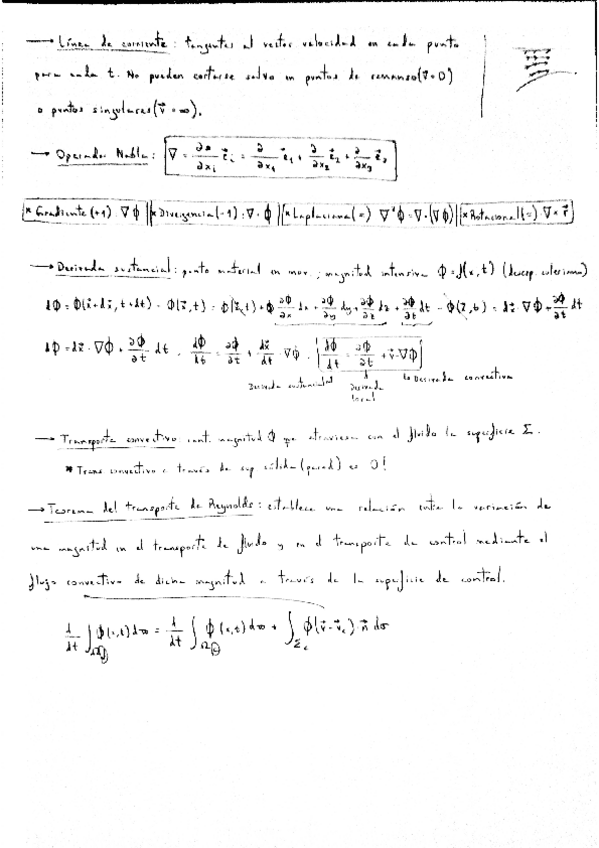 → Línea de corriente: tangentes al vector velocidad en cada punto
para cada t. No pueden cortarse salvo en puntos de remanso (v⃗=0)
o puntos singulares (v⃗=∞).
→ Operador Nabla: ∇ = ∂/∂xᵢ e⃗ᵢ = ∂/∂x₁ e⃗₁ + ∂/∂x₂ e⃗₂ + ∂/∂x₃ e⃗₃
* Gradiente (+1): ∇ϕ | * Divergencia (-1): ∇·ϕ | * Laplaciana (=) ∇²ϕ = ∇·(∇ϕ) | * Rotacional (=) ∇×
→ Derivada sustancial: punto material en mov.; magnitud intensiva ϕ = f(x,t) (descrip. euleriana)
dϕ = ϕ(x⃗+dx⃗, t+dt) - ϕ(x⃗,t) = ϕ(x⃗,t) + ∂ϕ/∂x dx + ∂ϕ/∂y dy + dz + ∂ϕ/∂t dt - ϕ(x⃗,t) = dx⃗·∇ϕ + ∂ϕ/∂t dt
dϕ = dx⃗·∇ϕ + ∂ϕ/∂t dt . dϕ/dt = ∂ϕ/∂t + dx⃗/dt·∇ϕ . dϕ/dt = ∂ϕ/∂t + v⃗·∇ϕ
Derivada sustancial Derivada local Derivada convectiva
→ Transporte convectivo: cant. magnitud ϕ que atraviesa con el fluido la superficie Σ.
* Trans convectivo a través de sup sólida (pared) es 0!
→ Teorema del transporte de Reynolds: establece una relación entre la variación de
una magnitud en el transporte de fluido y en el transporte de control mediante el
flujo convectivo de dicha magnitud a través de la superficie de control.
d/dt ∫ ϕ(x,t) dω = d/dt ∫ ϕ(x,t) dω + ∫_Σc ϕ(v⃗-v⃗c)·n⃗ dσ